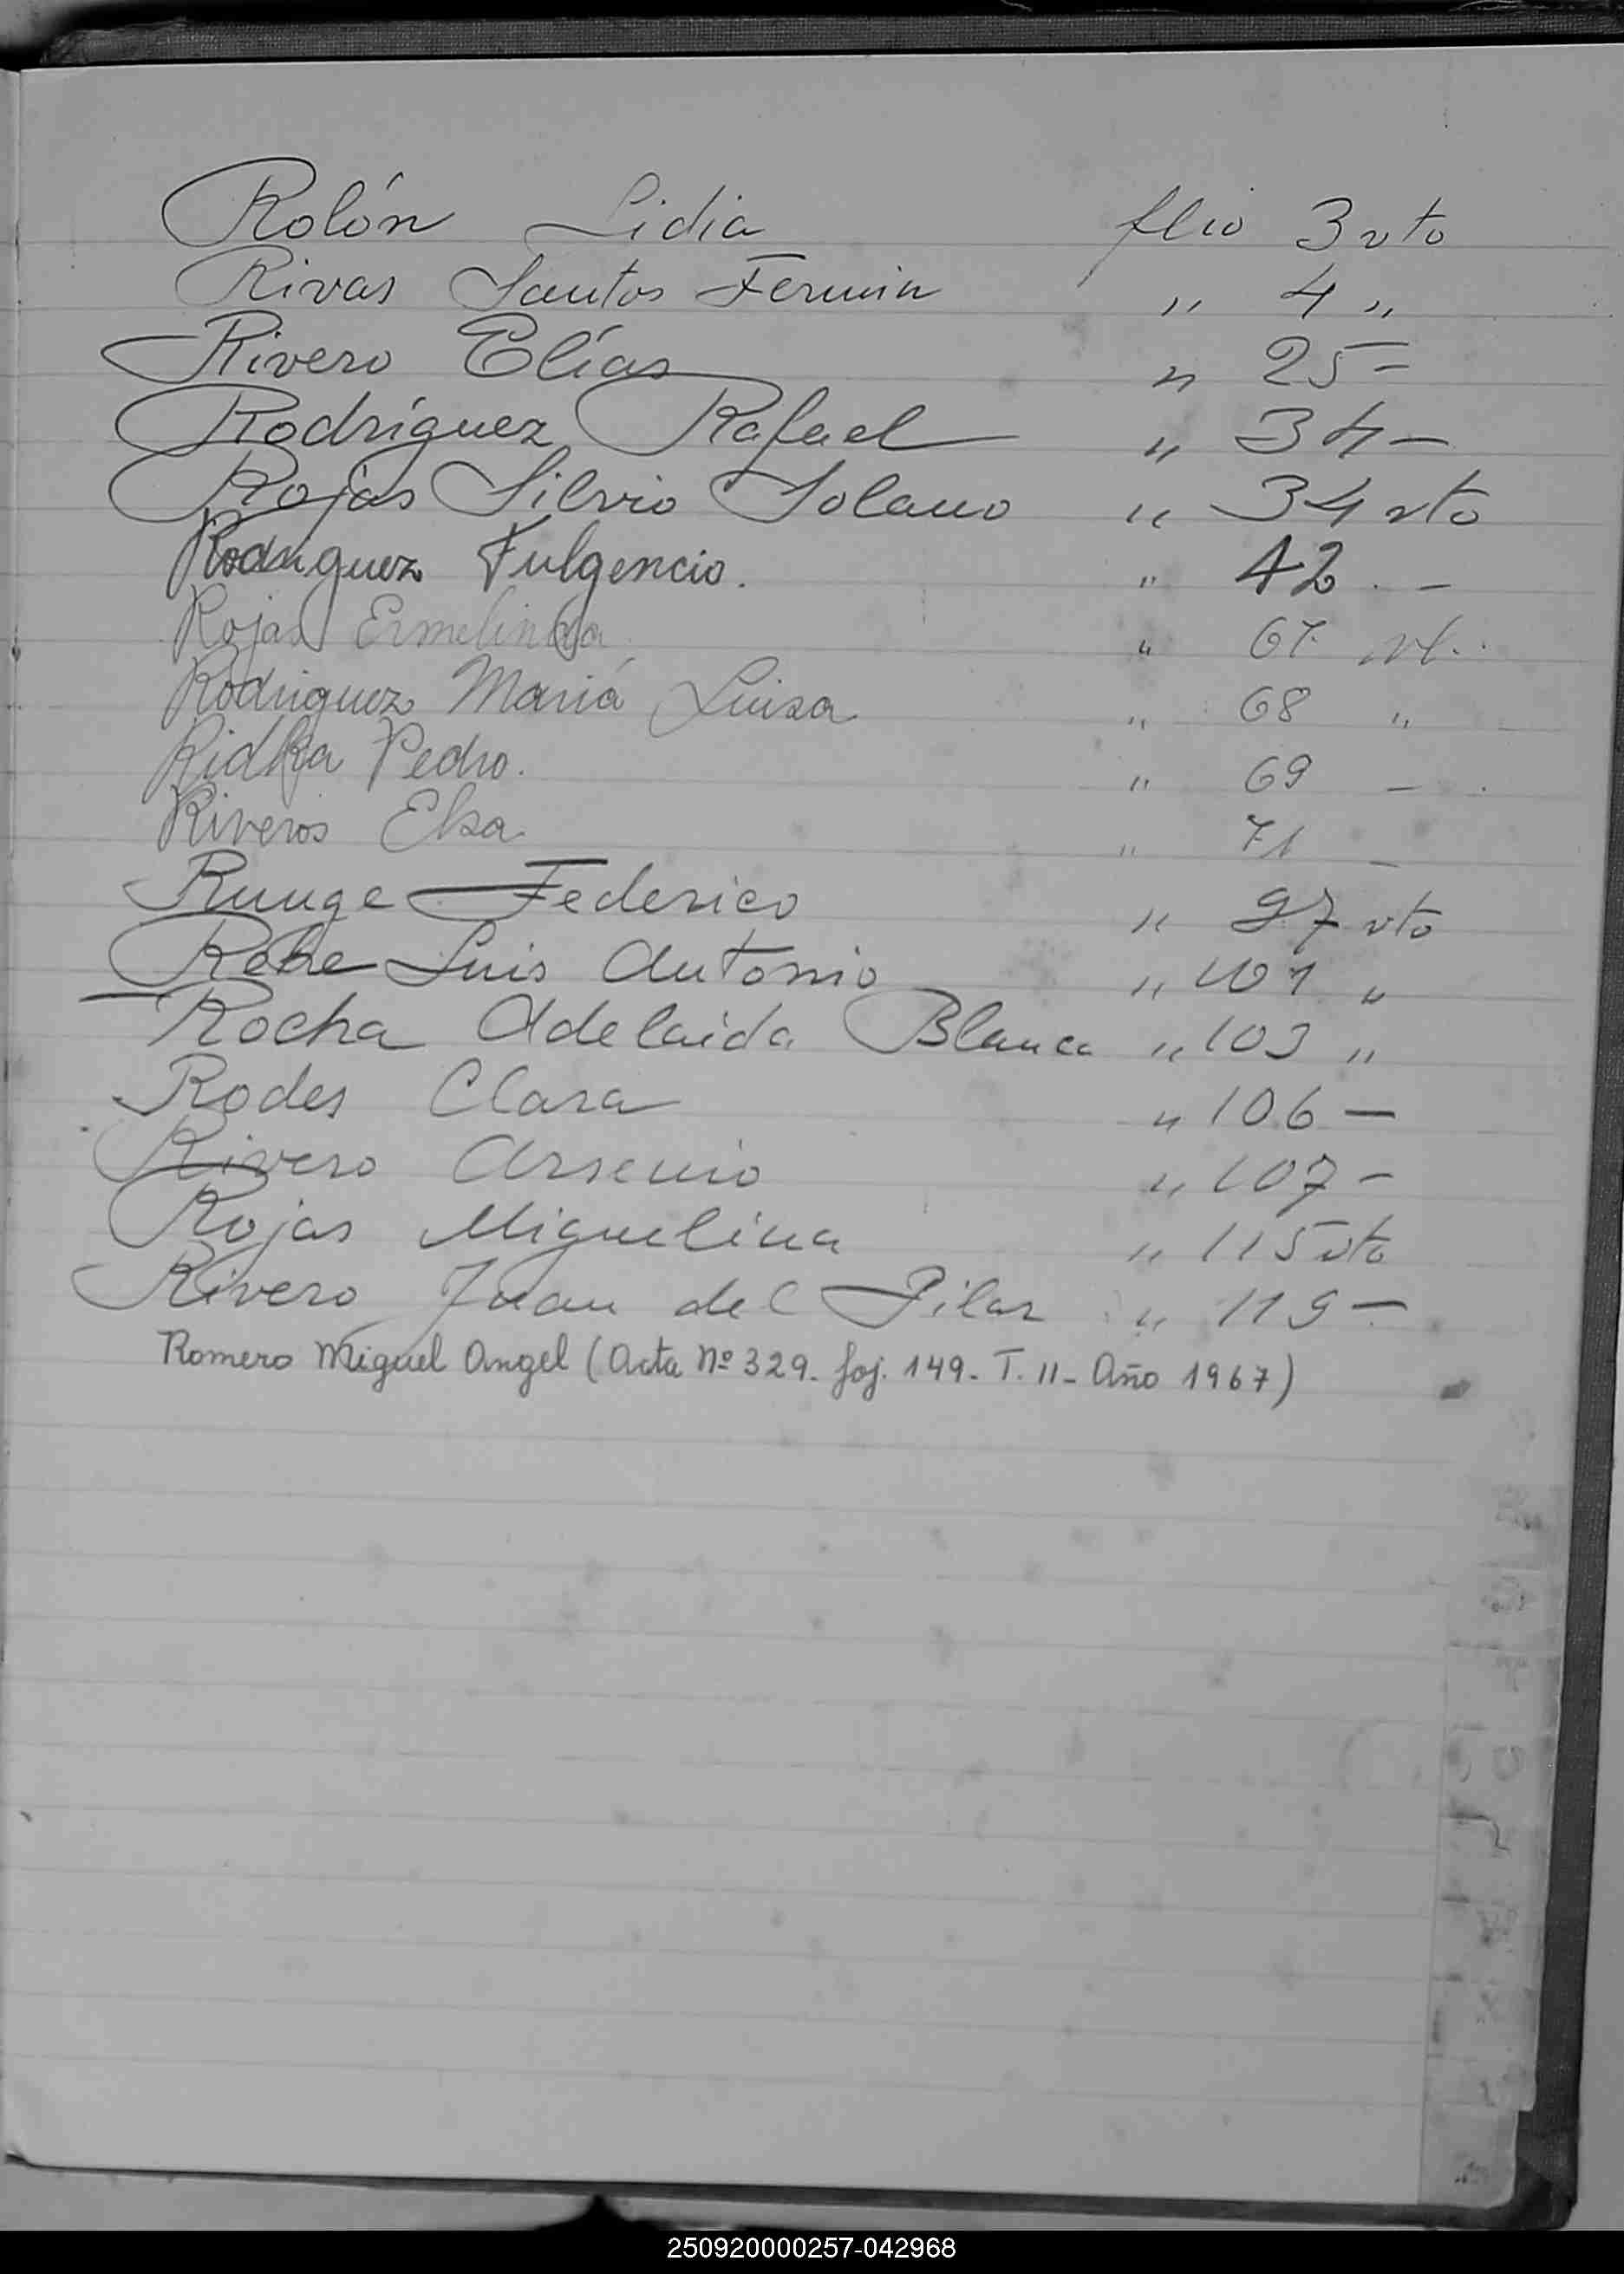 Rolón Lidia flio 3 vto
Rivas Santos Fermin " 4 "
Rivero Elías " 25 -
Rodríguez Rafael " 34 -
Rojas Silvio Solano " 34 vto
Rodriguez Fulgencio. " 42 . -
Rojas Ermelinda " 67 vt..
Rodriguez Mariá Luisa " 68 "
Ridka Pedro. " 69 - .
Riveros Elsa " 71 -
Runge Federico " 97 vto
Luis Antonio " 101 "
Rocha Adelaida Blanca " 103 "
Rodes Clara " 106 -
Rivero Arsenio " 107 -
Rojas Miguelina " 115 vto
Rivero Juan del Pilar " 119 -
Romero Miguel Angel (Acta Nº 329. foj. 149. T. II - Año 1967)
250920000257-042968